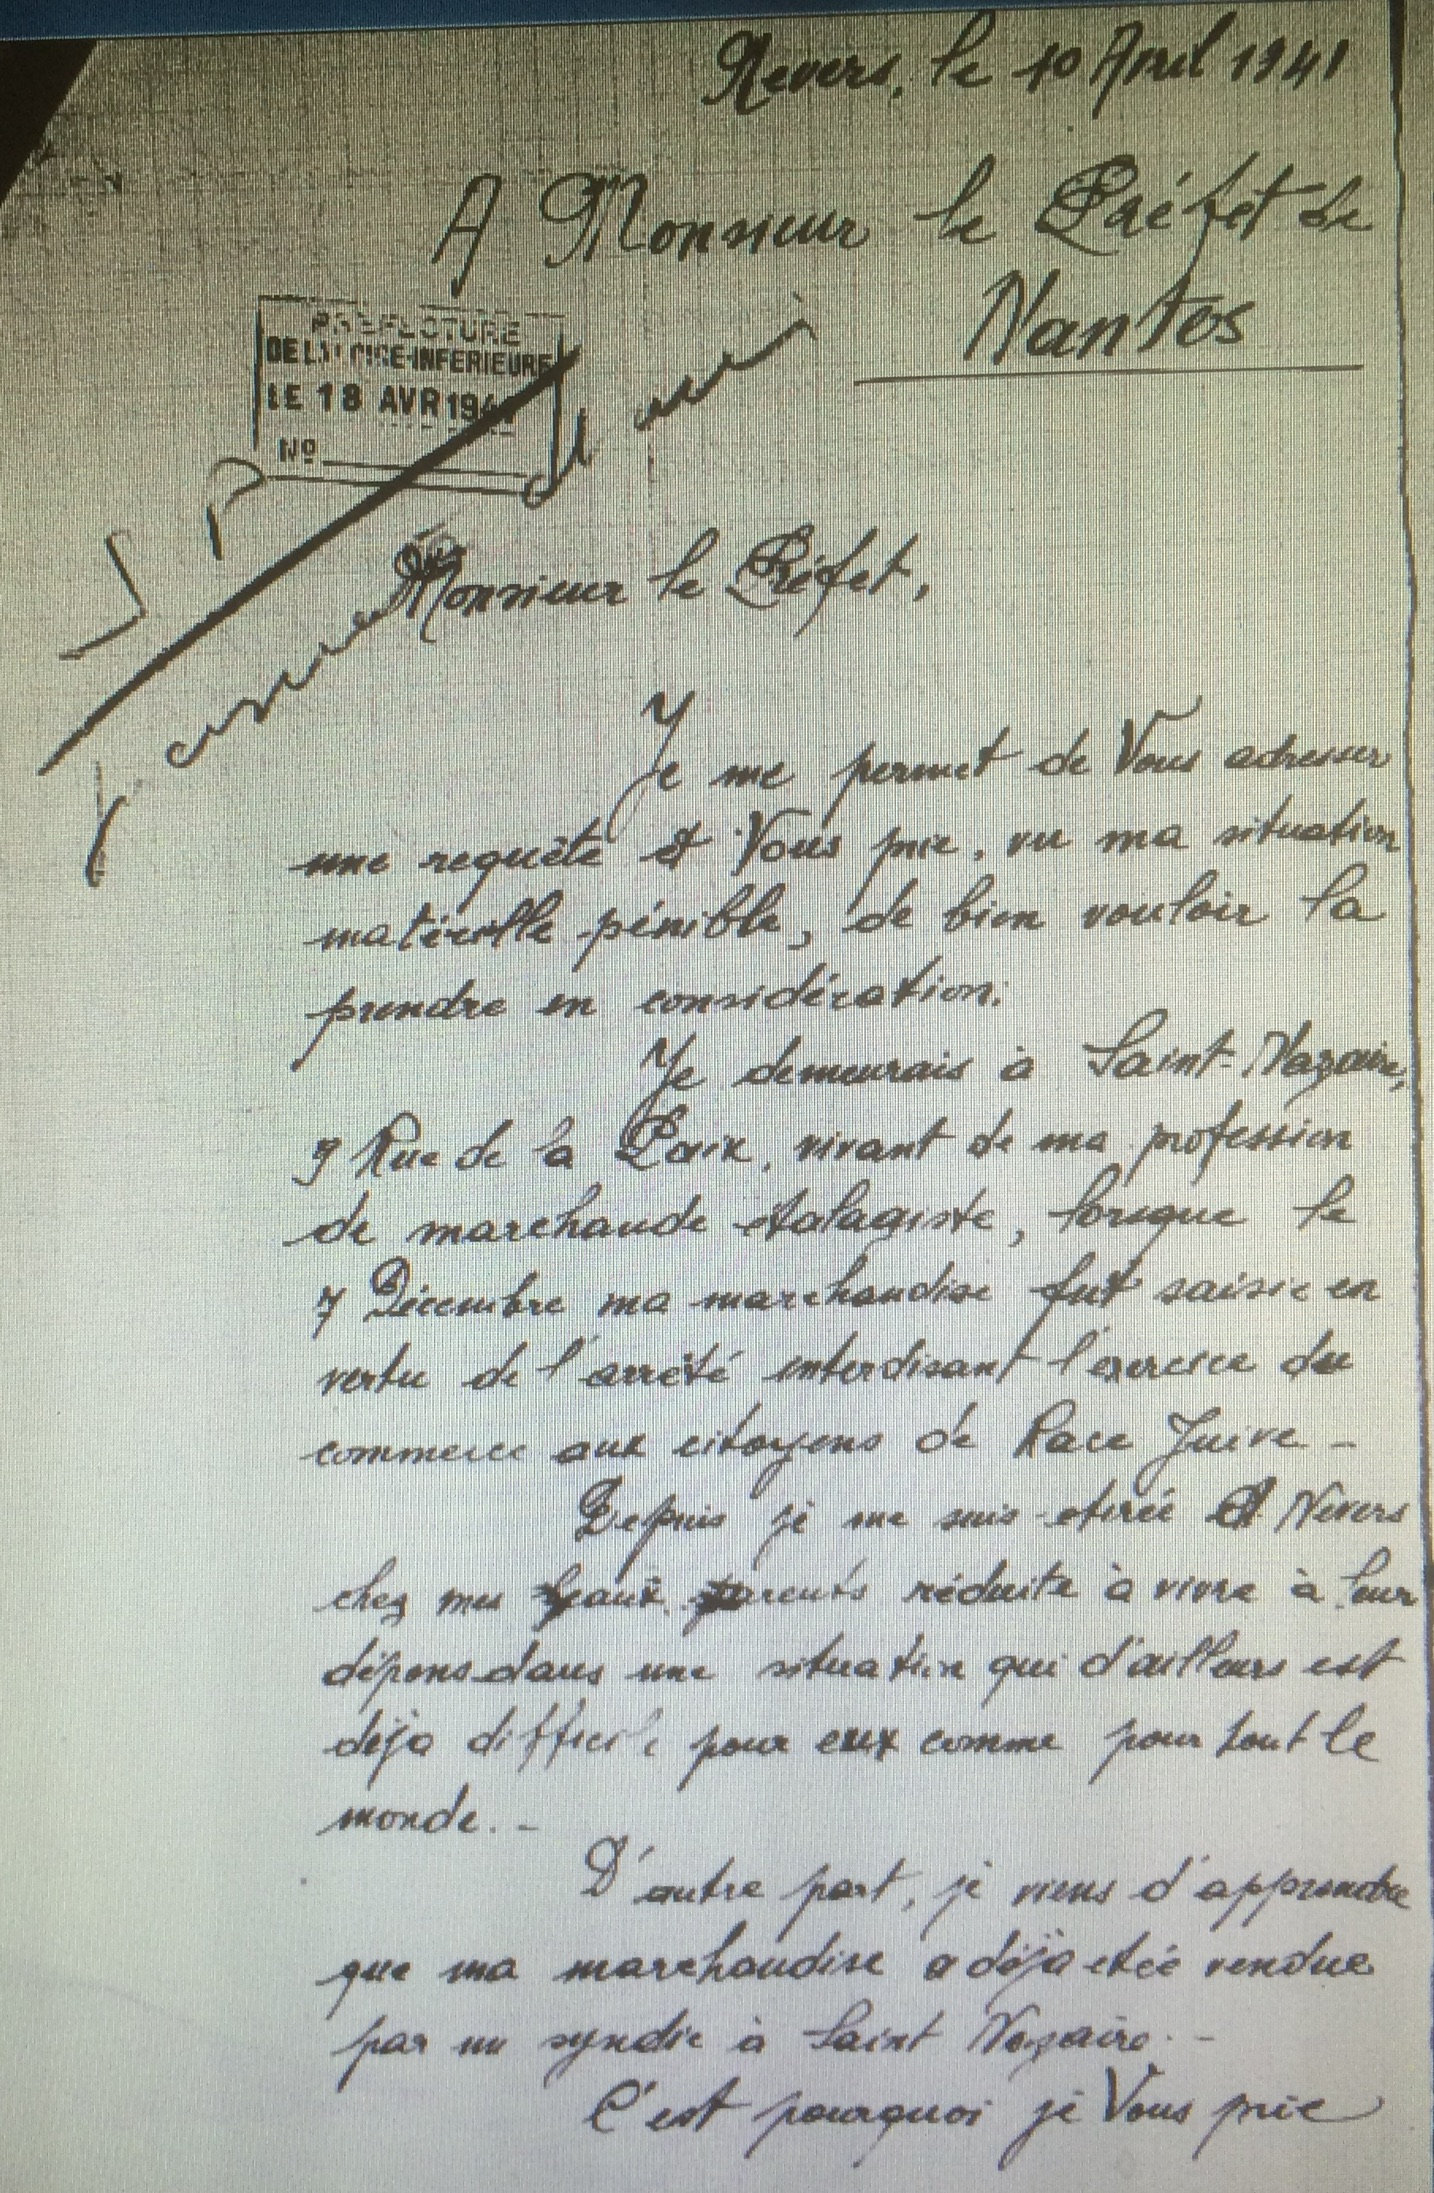 Nevers, le 10 Avril 1941
A Monsieur le Préfet de
Nantes
PREFECTURE
DE LA LOIRE-INFERIEURE
LE 18 AVR 1941
No
Monsieur le Préfet,
Je me permet de Vous adresser
une requête et Vous prie, vu ma situation
matérielle pénible, de bien vouloir la
prendre en considération.
Je demeurais à Saint-Nazaire,
9 Rue de la Paix, vivant de ma profession
de marchande étalagiste, lorsque le
7 Décembre ma marchandise fut saisie en
vertu de l'arrêté interdisant l'exercice du
commerce aux citoyens de Race Juive -
Depuis je me suis à Nevers
chez mes beaux parents réduite à vivre à leur
dépens dans une situation qui d'ailleurs est
déja difficile pour eux comme pour tout le
monde. -
D'autre part, je viens d'apprendre
que ma marchandise a déja etée vendue
par un syndic à Saint Nazaire. -
C'est pourquoi je Vous prie